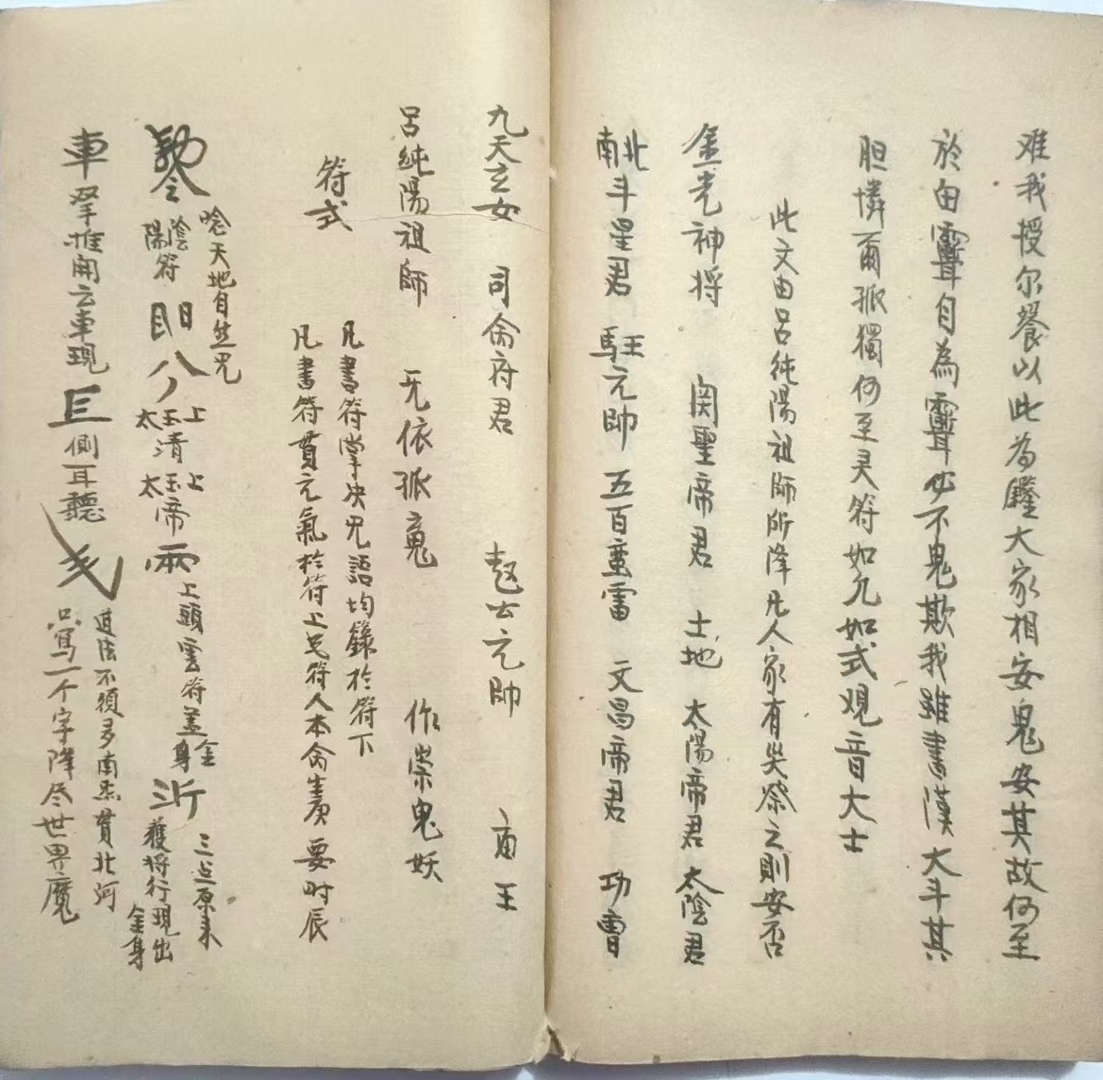 难我授尔餐以此为饜大家相安鬼安其故何至
於由聻自為聻必不鬼欺我雖書漢大斗其
胆憐爾孤獨何至灵符如允如式观音大士
此文由呂純陽祖師所降凡人家有失祭之則安否
金光神将 関聖帝君 土地 太陽帝君 太陰君
南北斗星君 駐王元帥 五百蛮雷 文昌帝君 功曹
九天玄女 司命府君 趙公元帥 王
呂純陽祖師 无依孤鬼 作祟鬼妖
符式
凡書符掌决咒語均錄於符下
凡書符貫元氣於符上 符人本命生庚要时辰
唸天地自然咒
勅令 陰陽符 八 上玉太清 上玉太帝 雨 上頭雲符盖金身 三点原来
獲将行現出金身
車 双手推開云車現 側耳聽 道法不須多南辰貫北河
只寫一个字降尽世界魔